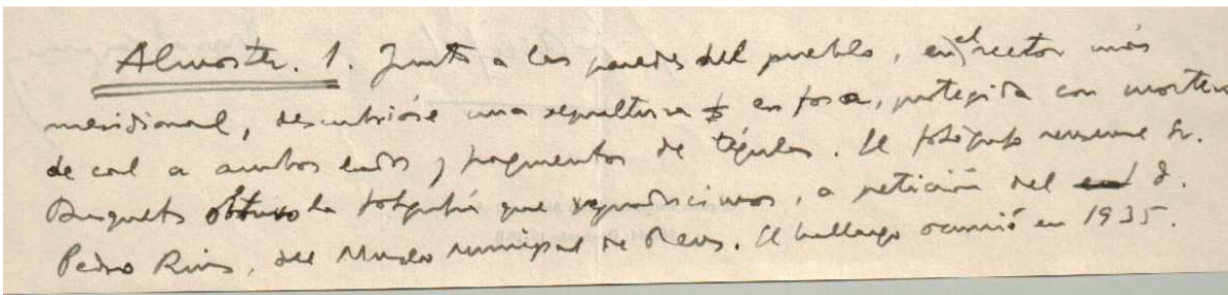 Almoster. 1. Junto a las paredes del pueblo, en el sector más
meridional, descubrióse una sepultura en fosa, protegida con mortero
de cal a ambos lados y fragmentos de tégulas. El fotógrafo reusense Sr.
Busquets obtuvo la fotografía que reproducimos, a petición del D.
Pedro Rius, del Museo municipal de Reus. El hallazgo ocurrió en 1935.